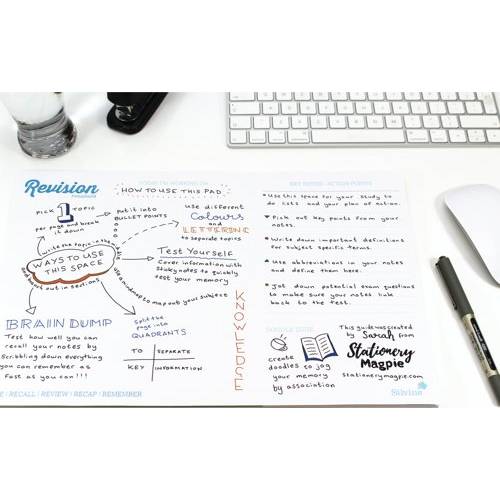 Revision
HOW TO USE THIS PAD
PICK 1 TOPIC
per page and break
it down
put it into
BULLET POINTS
use different
Colours
and
LETTERING
to separate topics
write the topic in the
WAYS TO USE
THIS SPACE
and
out in sections
Test Yourself
Cover information with
sticky notes to quickly
test your memory
use a mindmap to map out your subject
KNOWLEDGE
BRAIN DUMP
Test how well you can
recall your notes by
Scribbling down everything
you can remember as
Fast as you can!!!
Split the
page into
QUADRANTS
TO SEPARATE
KEY INFORMATION
/ RECALL / REVIEW / RECAP / REMEMBER
KEY NOTES / ACTION POINTS
Use this space for your study to
do lists and your plan of action.
Pick out key points from your
notes.
Write down important definitions
for subject specific terms.
Use abbreviations in your notes
and define them here.
Jot down potential exam questions
to make sure your notes link
back to the test.
DOODLE ZONE
create
doodles to jog
your memory
by association
This guide was created
by Sarah from
Stationery
Magpie
stationerymagpie.com
Silvine